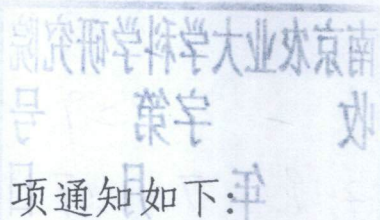 南京农业大学科学研究院
收 字第 号
年 月 日
项通知如下：